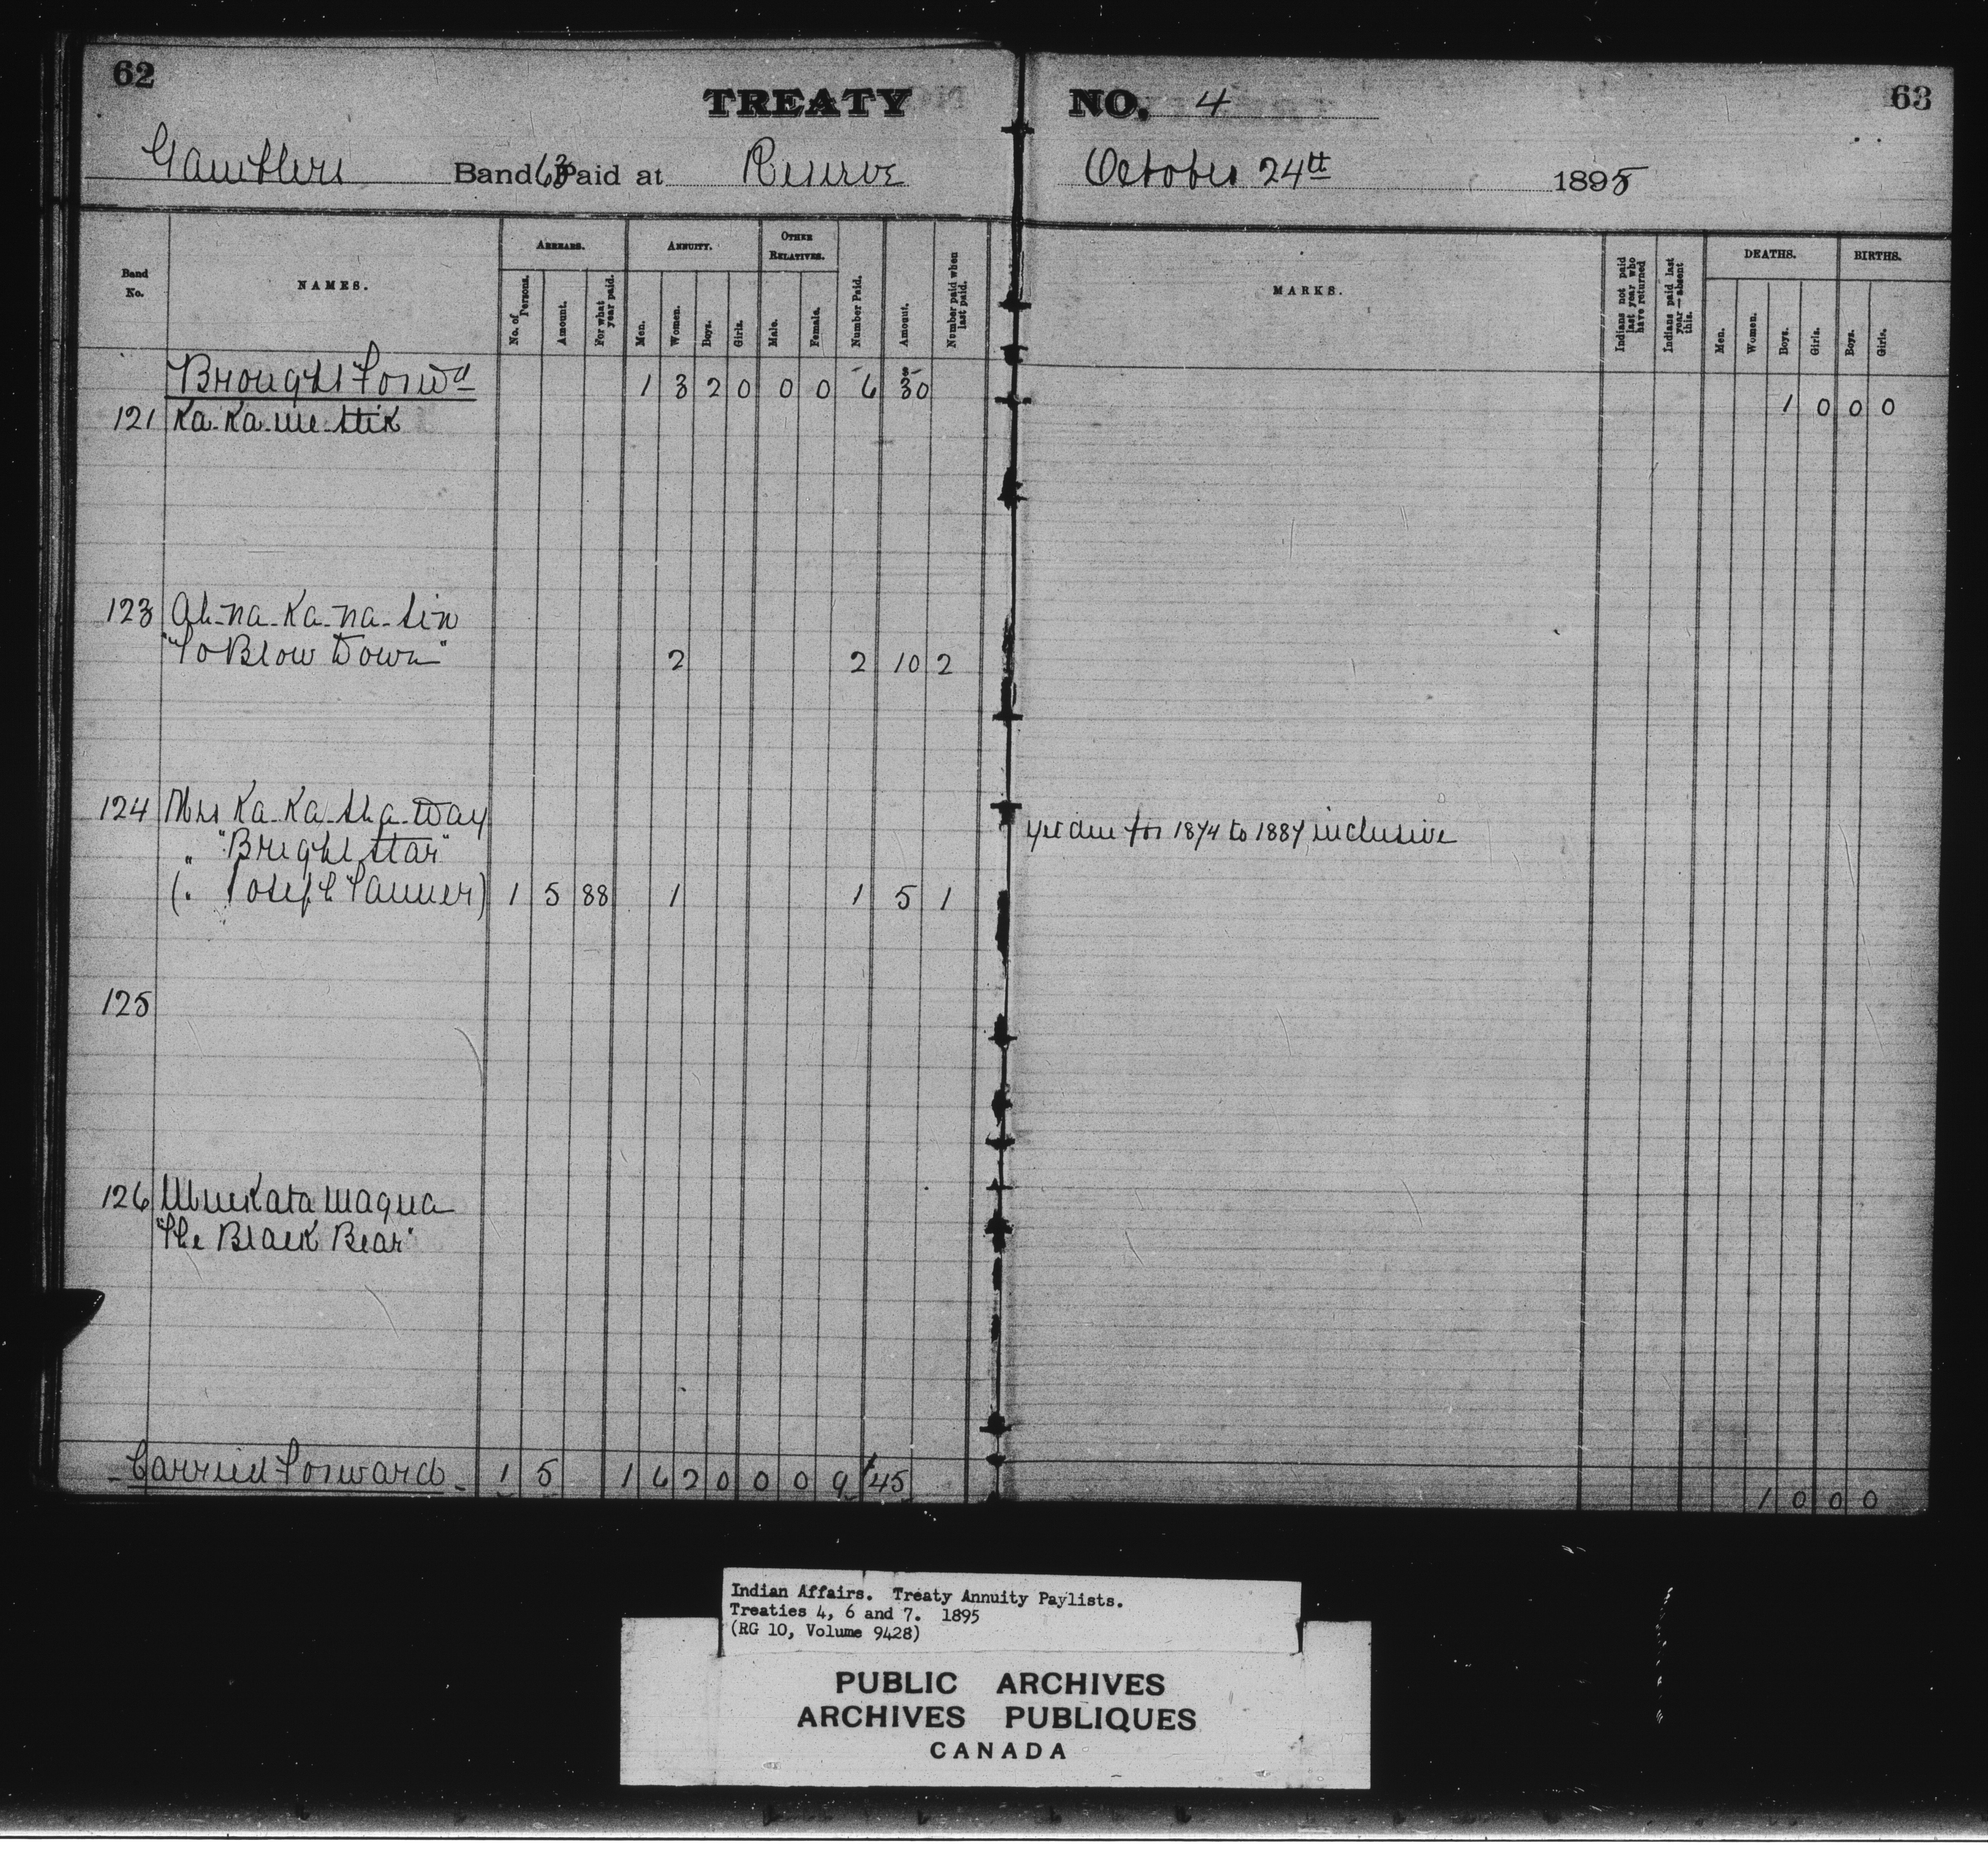 62
TREATY NO. 4
63
Gamblers Band 63 Paid at Reserve October 24th 1895
Band No.
NAMES.
ARREARS.
No. of Persons.
Amount.
For what year paid.
ANNUITY.
Men.
Women.
Boys.
Girls.
OTHER RELATIVES.
Male.
Female.
Number Paid.
Amount.
Number paid when last paid.
MARKS.
Indians not paid last year who have returned
Indians paid last year—absent this.
DEATHS.
Men.
Women.
Boys.
Girls.
BIRTHS.
Boys.
Girls.
Brought Forwd 1 3 2 0 0 0 6 30 1 0 0 0
121 Ka-Ka-me-stik
123 Ah-na-Ka-na-sin
"To Blow Down" 2 2 10 2
124 Mrs Ka-Ka-sha-way yet due for 1874 to 1887 inclusive
" "Bright Star"
(" Joseph Tanner) 1 5 88 1 1 5 1
125
126 Muckata Maqua
"The Black Bear"
Carried Forward 1 5 1 6 2 0 0 0 9 45 1 0 0 0
Indian Affairs. Treaty Annuity Paylists.
Treaties 4, 6 and 7. 1895
(RG 10, Volume 9428)
PUBLIC ARCHIVES
ARCHIVES PUBLIQUES
CANADA